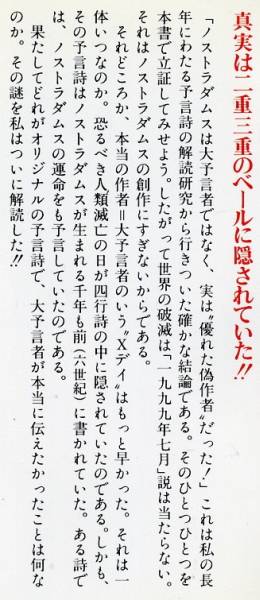 真実は二重三重のベールに隠されていた!!
「ノストラダムスは大予言者ではなく、実は〝優れた偽作者〟だった!」これは私の長
年にわたる予言詩の解読研究から行きついた確かな結論である。そのひとつひとつを
本書で立証してみせよう。したがって世界の破滅は「一九九九年七月」説は当たらない。
それはノストラダムスの創作にすぎないからである。
それどころか、本当の作者=大予言者のいう〝Xデイ〟はもっと早かった。それは一
体いつなのか。恐るべき人類滅亡の日が四行詩の中に隠されていたのである。しかも、
その予言詩はノストラダムスが生まれる千年も前(六世紀)に書かれていた。ある詩で
は、ノストラダムスの運命をも予言していたのである。
果たしてどれがオリジナルの予言詩で、大予言者が本当に伝えたかったことは何な
のか。その謎を私はついに解読した!!